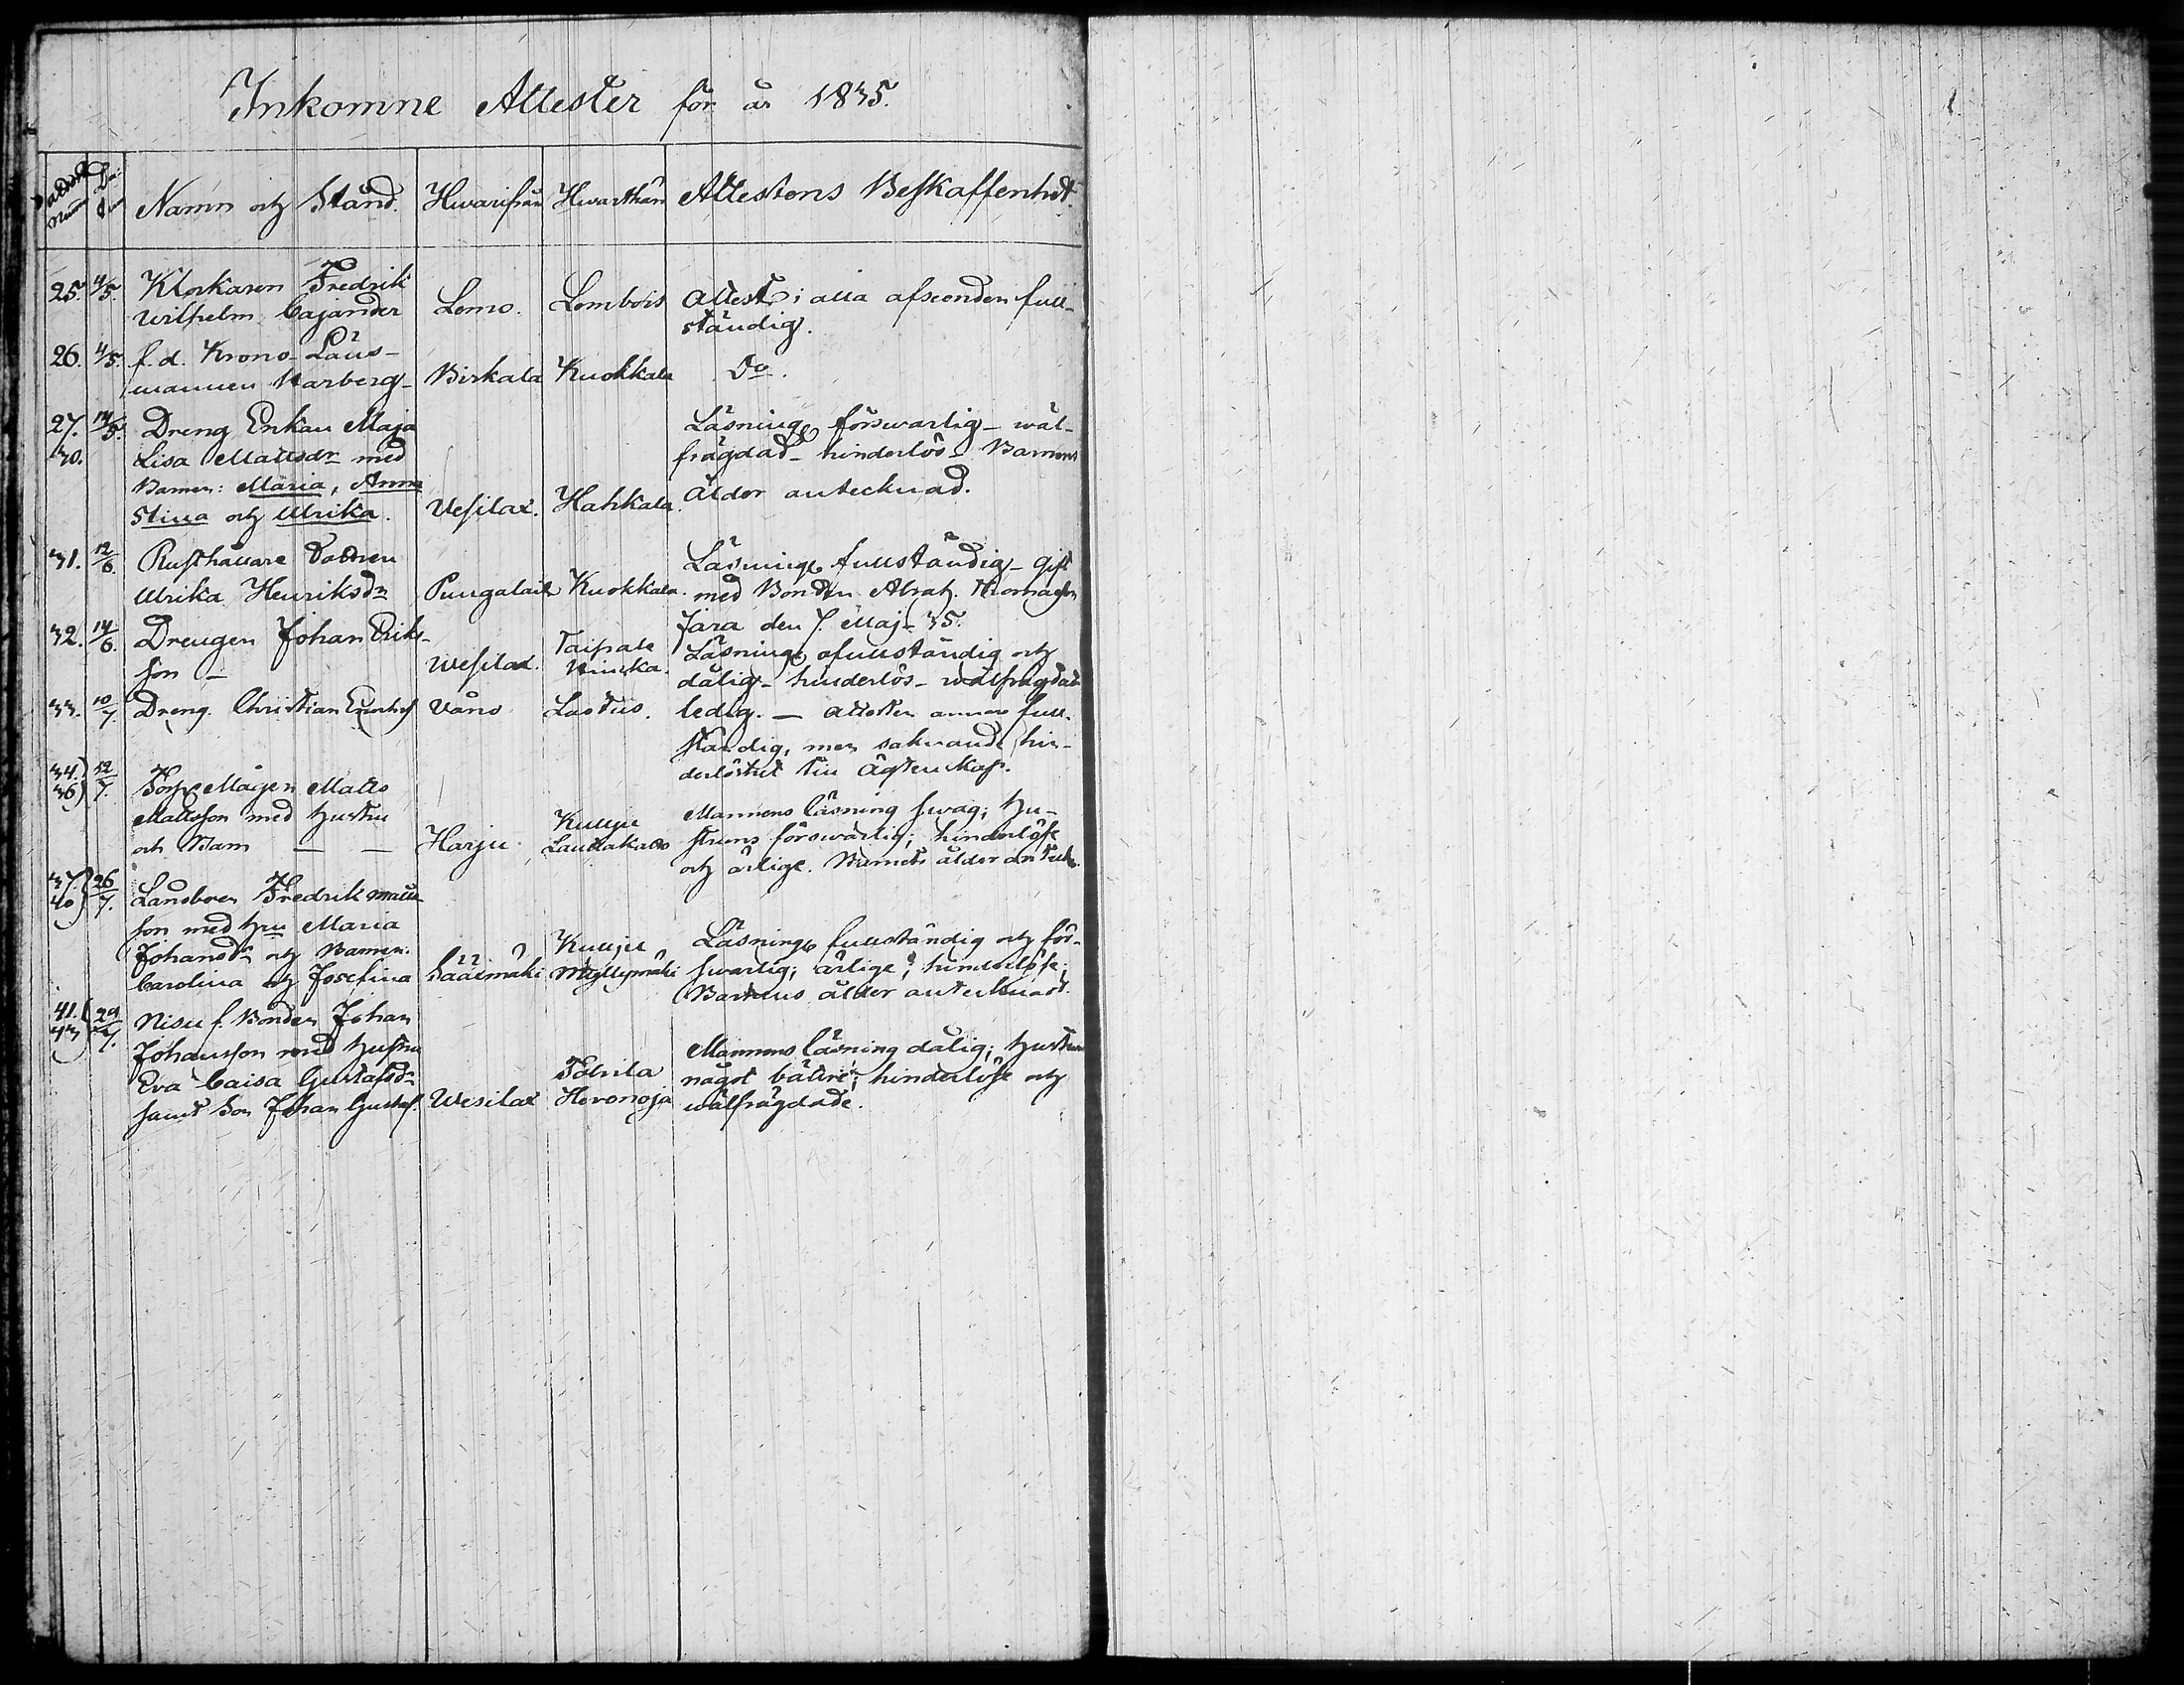 Inkomne Attester för år 1835.
Namn och Stånd. Hwarifrån Hwarthän Attestens Beskaffenhet.
25. 4/5. Klockaren Fredrik
Wilhelm Cajander Lemo. Lembois Attest i alla afseenden full-
ständig.
26. 4/5. f. d. Krono-Läns-
mannen Warberg- Birkala Kuokkala Do.
27. 14/5. Dreng Enkan Maja Läsning försvarlig - wäl-
30. Lisa Mattsdr med frägdad - hinderlös - Barnens
Barnen: Maria, Anna ålder antecknad.
Stina och Ulrika. Vesilax. Hahkala.
31. 12/6. Rusthållare Dottren Läsning fullständig - Gift
Ulrika Henriksdr Pungalait Kuokkala. med Bonden Abrah. Thomasson
Jara den 7. Maj 35.
32. 14/6. Drengen Johan Eriks- Läsning ofullständig och
son - Wesilax. Taipale dålig - hinderlös - wälfrägdad
33. 10/7. Dreng. Christian Wåno Lastus. ledig. - Attesten annars full-
ständig, men saknande hin-
derlöshet till Ägtenskap.
34. 36) 12/7. Matts
Mattsson med hustru Mannens läsning swag; hu-
och Barn - - Harju. Kulju Lautakatto struns förswarlig; hinderlöse
och ärlige. Barnets ålder anteckn.
37. 40) 26/7. Fredrik Matts-
son med hru Maria
Johansdr och Barnen: Kulju Läsning fullständig och för-
Carolina och Josefina Sääsmäki Myllymäki swarlig; ärlige; hinderlöse;
Barnens ålder antecknad.
41. 43) 29/7. Nisu f. Bonden Johan
Johansson med hustru Mannens läsning dålig; hustruns
Eva Caisa Gustafsdr något bättre; hinderlöse och
samt Son Johan Gustaf. Wesilax Heronoja wälfrägdade.